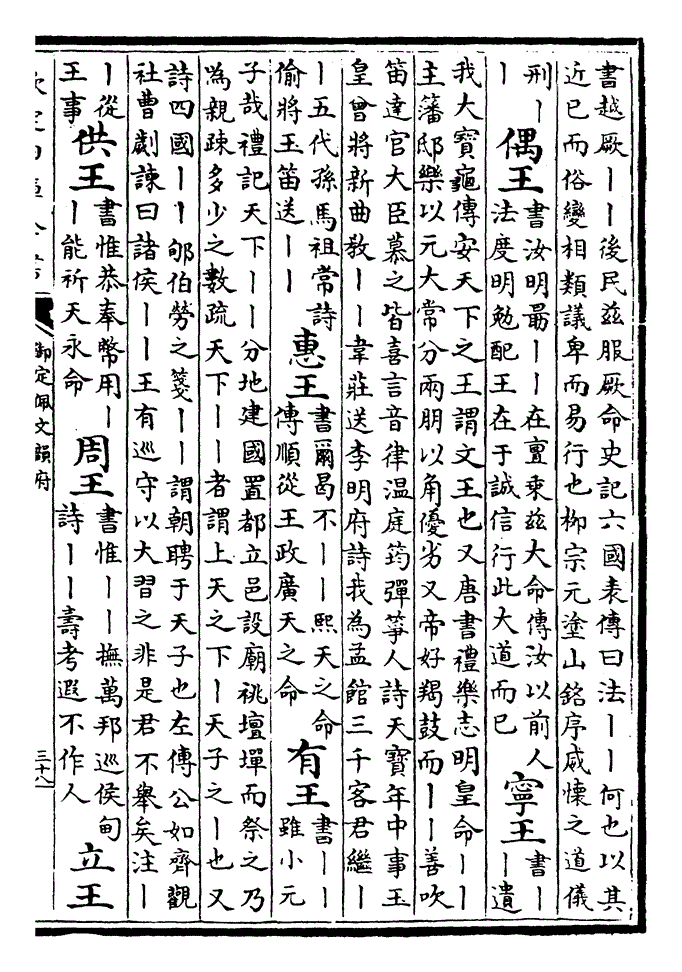 書越厥丨丨後民茲服厥命史記六國表傳曰法丨丨何也以其
近已而俗變相類議卑而易行也柳宗元塗山銘序咸懷之道儀
刑丨
丨
偶王
書汝明勗丨丨在亶乗茲大命傳汝以前人
法度明勉配王在于誠信行此大道而已
寧王
書丨
丨遺
我大寶龜傳安天下之王謂文王也又唐書禮樂志明皇命丨丨
主藩邸樂以元大常分兩朋以角優劣又帝好羯鼓而丨丨善吹
笛達官大臣慕之皆喜言音律温庭筠彈箏人詩天寶年中事玉
皇曾將新曲敎丨丨韋莊送李明府詩我為孟館三千客君繼丨
丨五代孫馬祖常詩
偷將玉笛送丨丨
惠王
書爾曷不丨丨熙天之命
傳順從王政廣天之命
有王
書丨丨
雖小元
子哉禮記天下丨丨分地建國置都立邑設廟祧壇墠而祭之乃
為親踈多少之數疏天下丨丨者謂上天之下丨天子之丨也又
詩四國丨丨郇伯勞之箋丨丨謂朝聘于天子也左傳公如齊觀
社曹劌諫曰諸侯丨丨王有巡守以大習之非是君不舉矣注丨
丨從
王事
供王
書惟恭奉幣用丨
丨能祈天永命
周王
書惟丨丨撫萬邦巡侯甸
詩丨丨壽考遐不作人
立王
御定佩文韻府
三十八